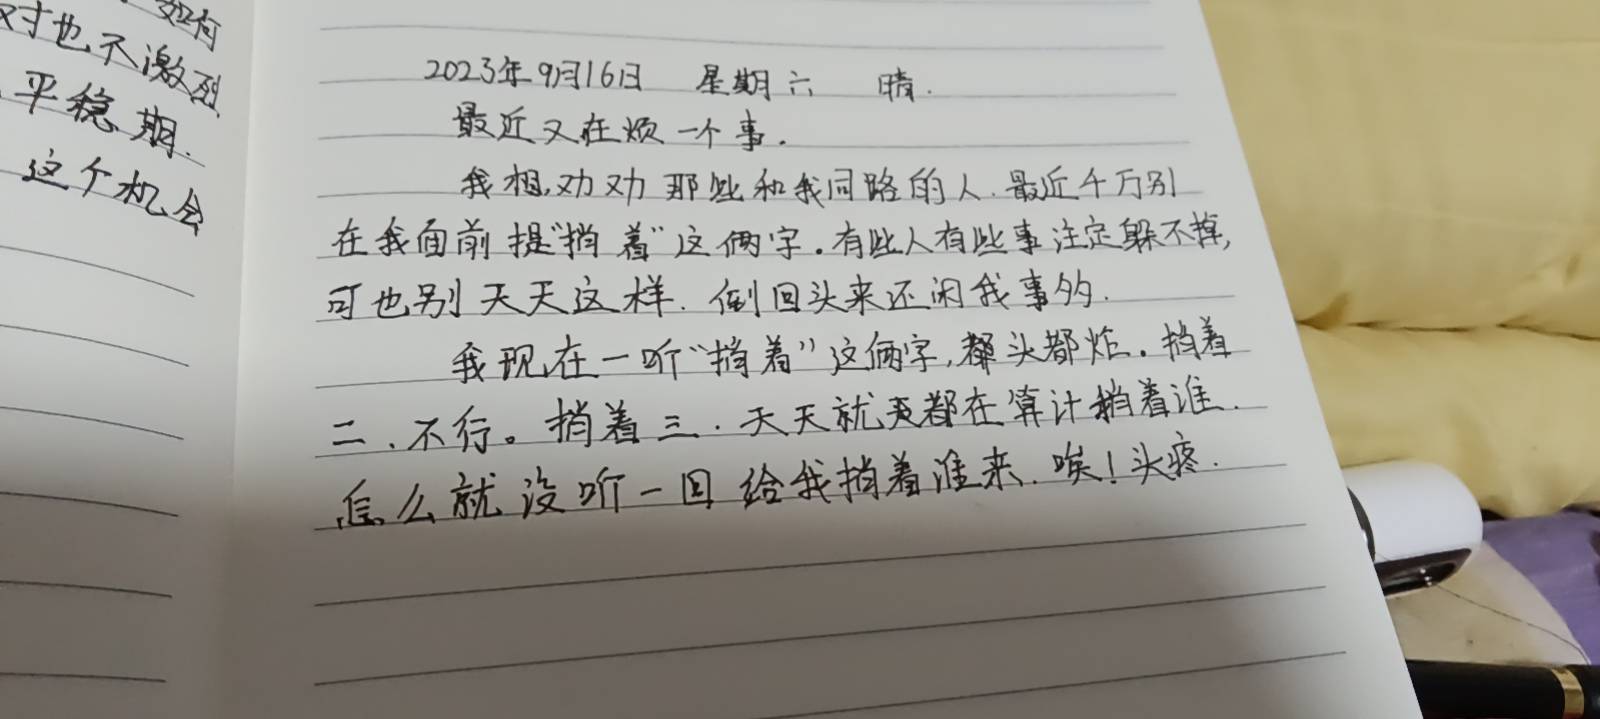 如何
对也不激烈
平稳期.
这个机会
2023年9月16日 星期六 晴.
最近又在烦一个事.
我想,劝劝那些和我同路的人.最近千万别
在我面前提“捎着”这俩字.有些人有些事注定躲不掉,
可也别天天这样.倒回头来还闲我事多.
我现在一听“捎着”这俩字,头都炸.捎着
二、不行。捎着三.天天就都在算计捎着谁.
怎么就没听一回给我捎着谁来.唉!头疼.